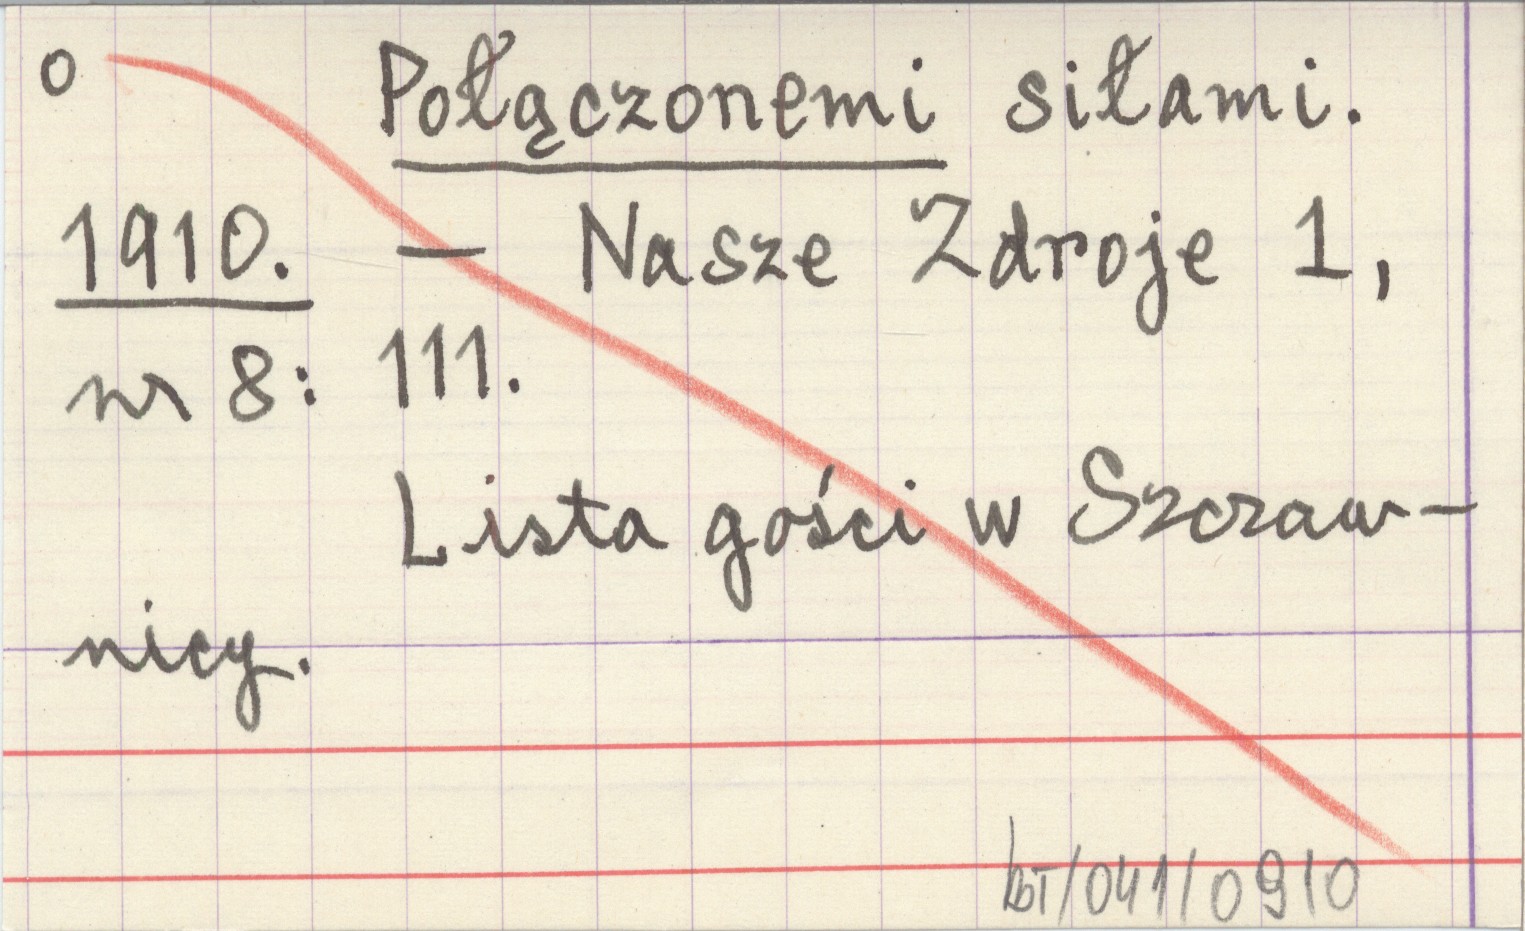 o Połączonemi siłami.
1910. — Nasze Zdroje 1,
nr 8: 111.
Lista gości w Szczaw-
nicy.
koT/041/0910